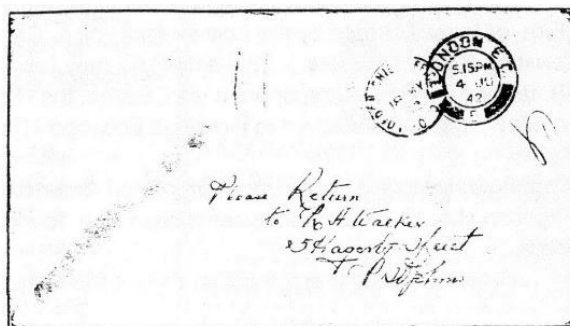 LONDON E.C.
5.15 PM
4 JU
42
E
Please Return
to R H Walker
25 Hagerty Street